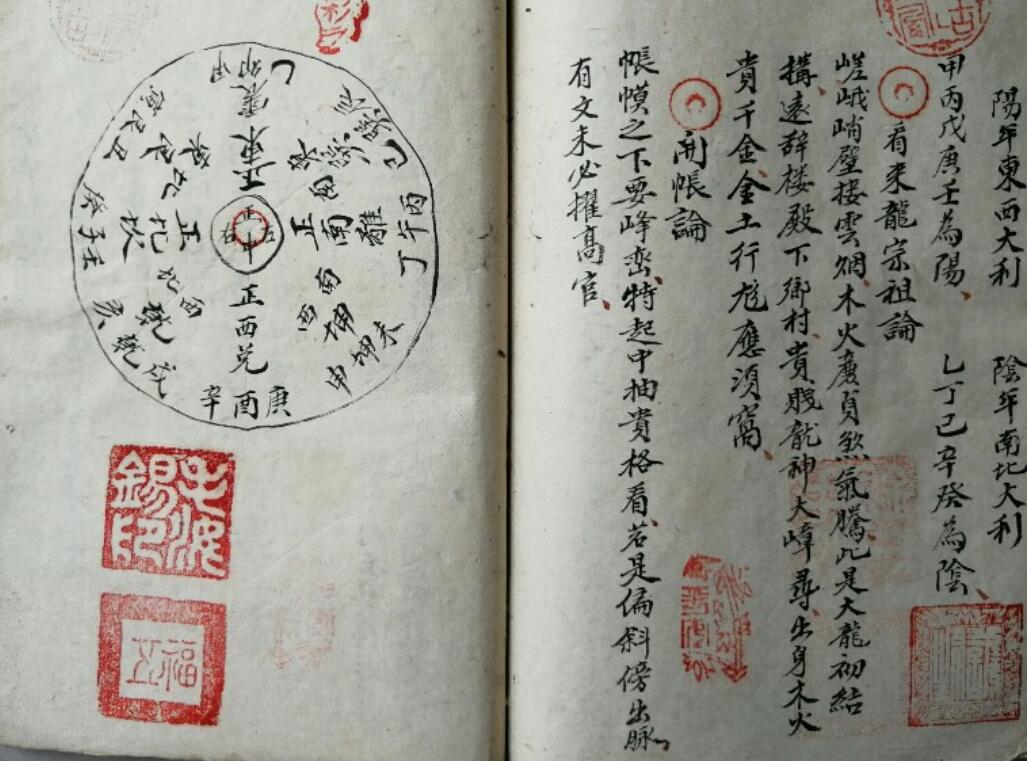 陽年東西大利 陰年南北大利
甲丙戊庚壬為陽、 乙丁己辛癸為陰、
看來龍宗祖論
嵯峨峭壁接雲烟、木火廉貞煞氣騰、此是大龍初結
構、遠辞楼殿下鄉村、貴賤龍神大嶂尋、出身木火
貴千金、金土行龙應須窩、
開帳論
帳幙之下要峰巒、特起中抽貴格看、若是偏斜傍出脉、
有文未必擢高官、
乙卯甲
正東震
巳巽辰
東南巽
丙午丁
正南離
未坤申
西南坤
庚酉辛
正西兌
戌乾亥
西北乾
壬子癸
正北坎
丑艮寅
錫印
福